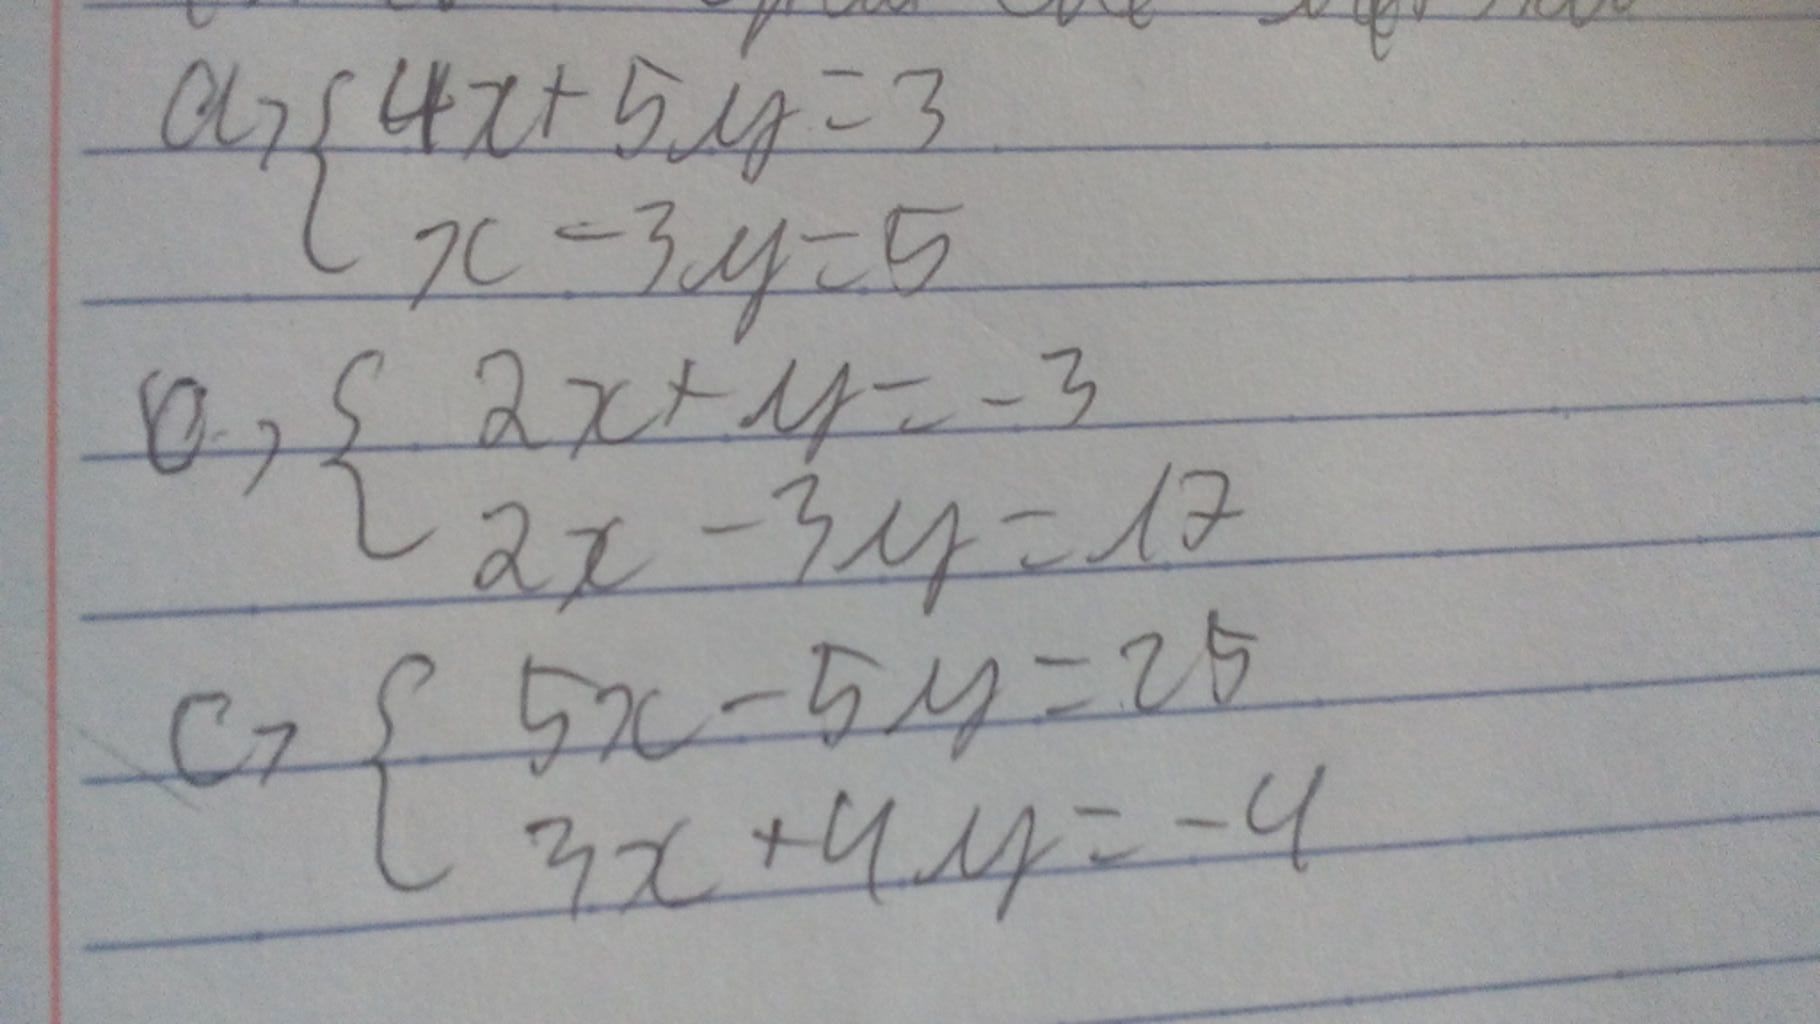 a, { 4x + 5y = 3
x - 3y = 5
b, { 2x + y = -3
2x - 3y = 17
c, { 5x - 5y = 25
3x + 4y = -4